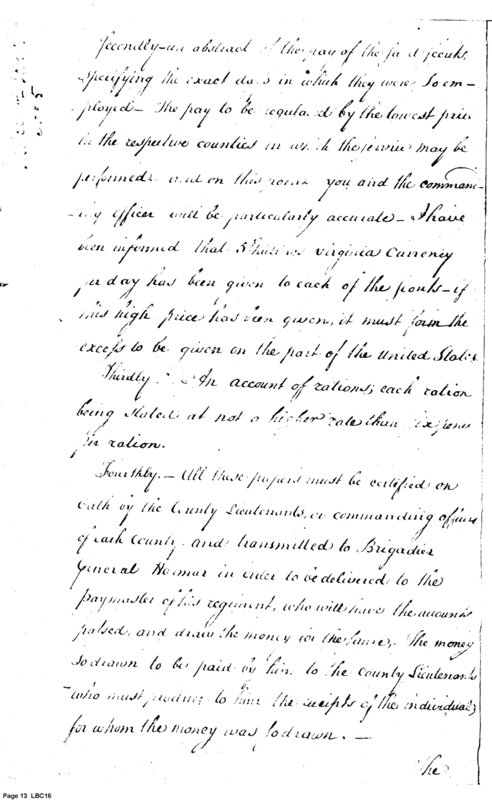 Secondly - an abstract of the pay of the said scouts
specifying the exact days in which they were so em-
ployed - The pay to be regulated by the lowest price
in the respective counties in which the service may be
performed - and on this point you and the command-
-ing officer will be particularly accurate - I have
been informed that 5 Virginia Currency
per day has been given to each of the scouts - if
this high price has been given, it must form the
excess to be given on the part of the United States
Thirdly. - An account of rations; each ration
being stated at not a higher rate than six pence
per ration.
Fourthly. - All these papers must be certified on
oath by the County Lieutenants, or commanding officers
of each County, and transmitted to Brigadier
General Harmar in order to be delivered to the
paymaster of his regiment, who will have the accounts
passed, and draw the money for the same. - The money
so drawn to be paid by him to the County Lieutenants
who must produce to him the receipts of the individuals
for whom the money was so drawn. -
The
Page 13 LBC16